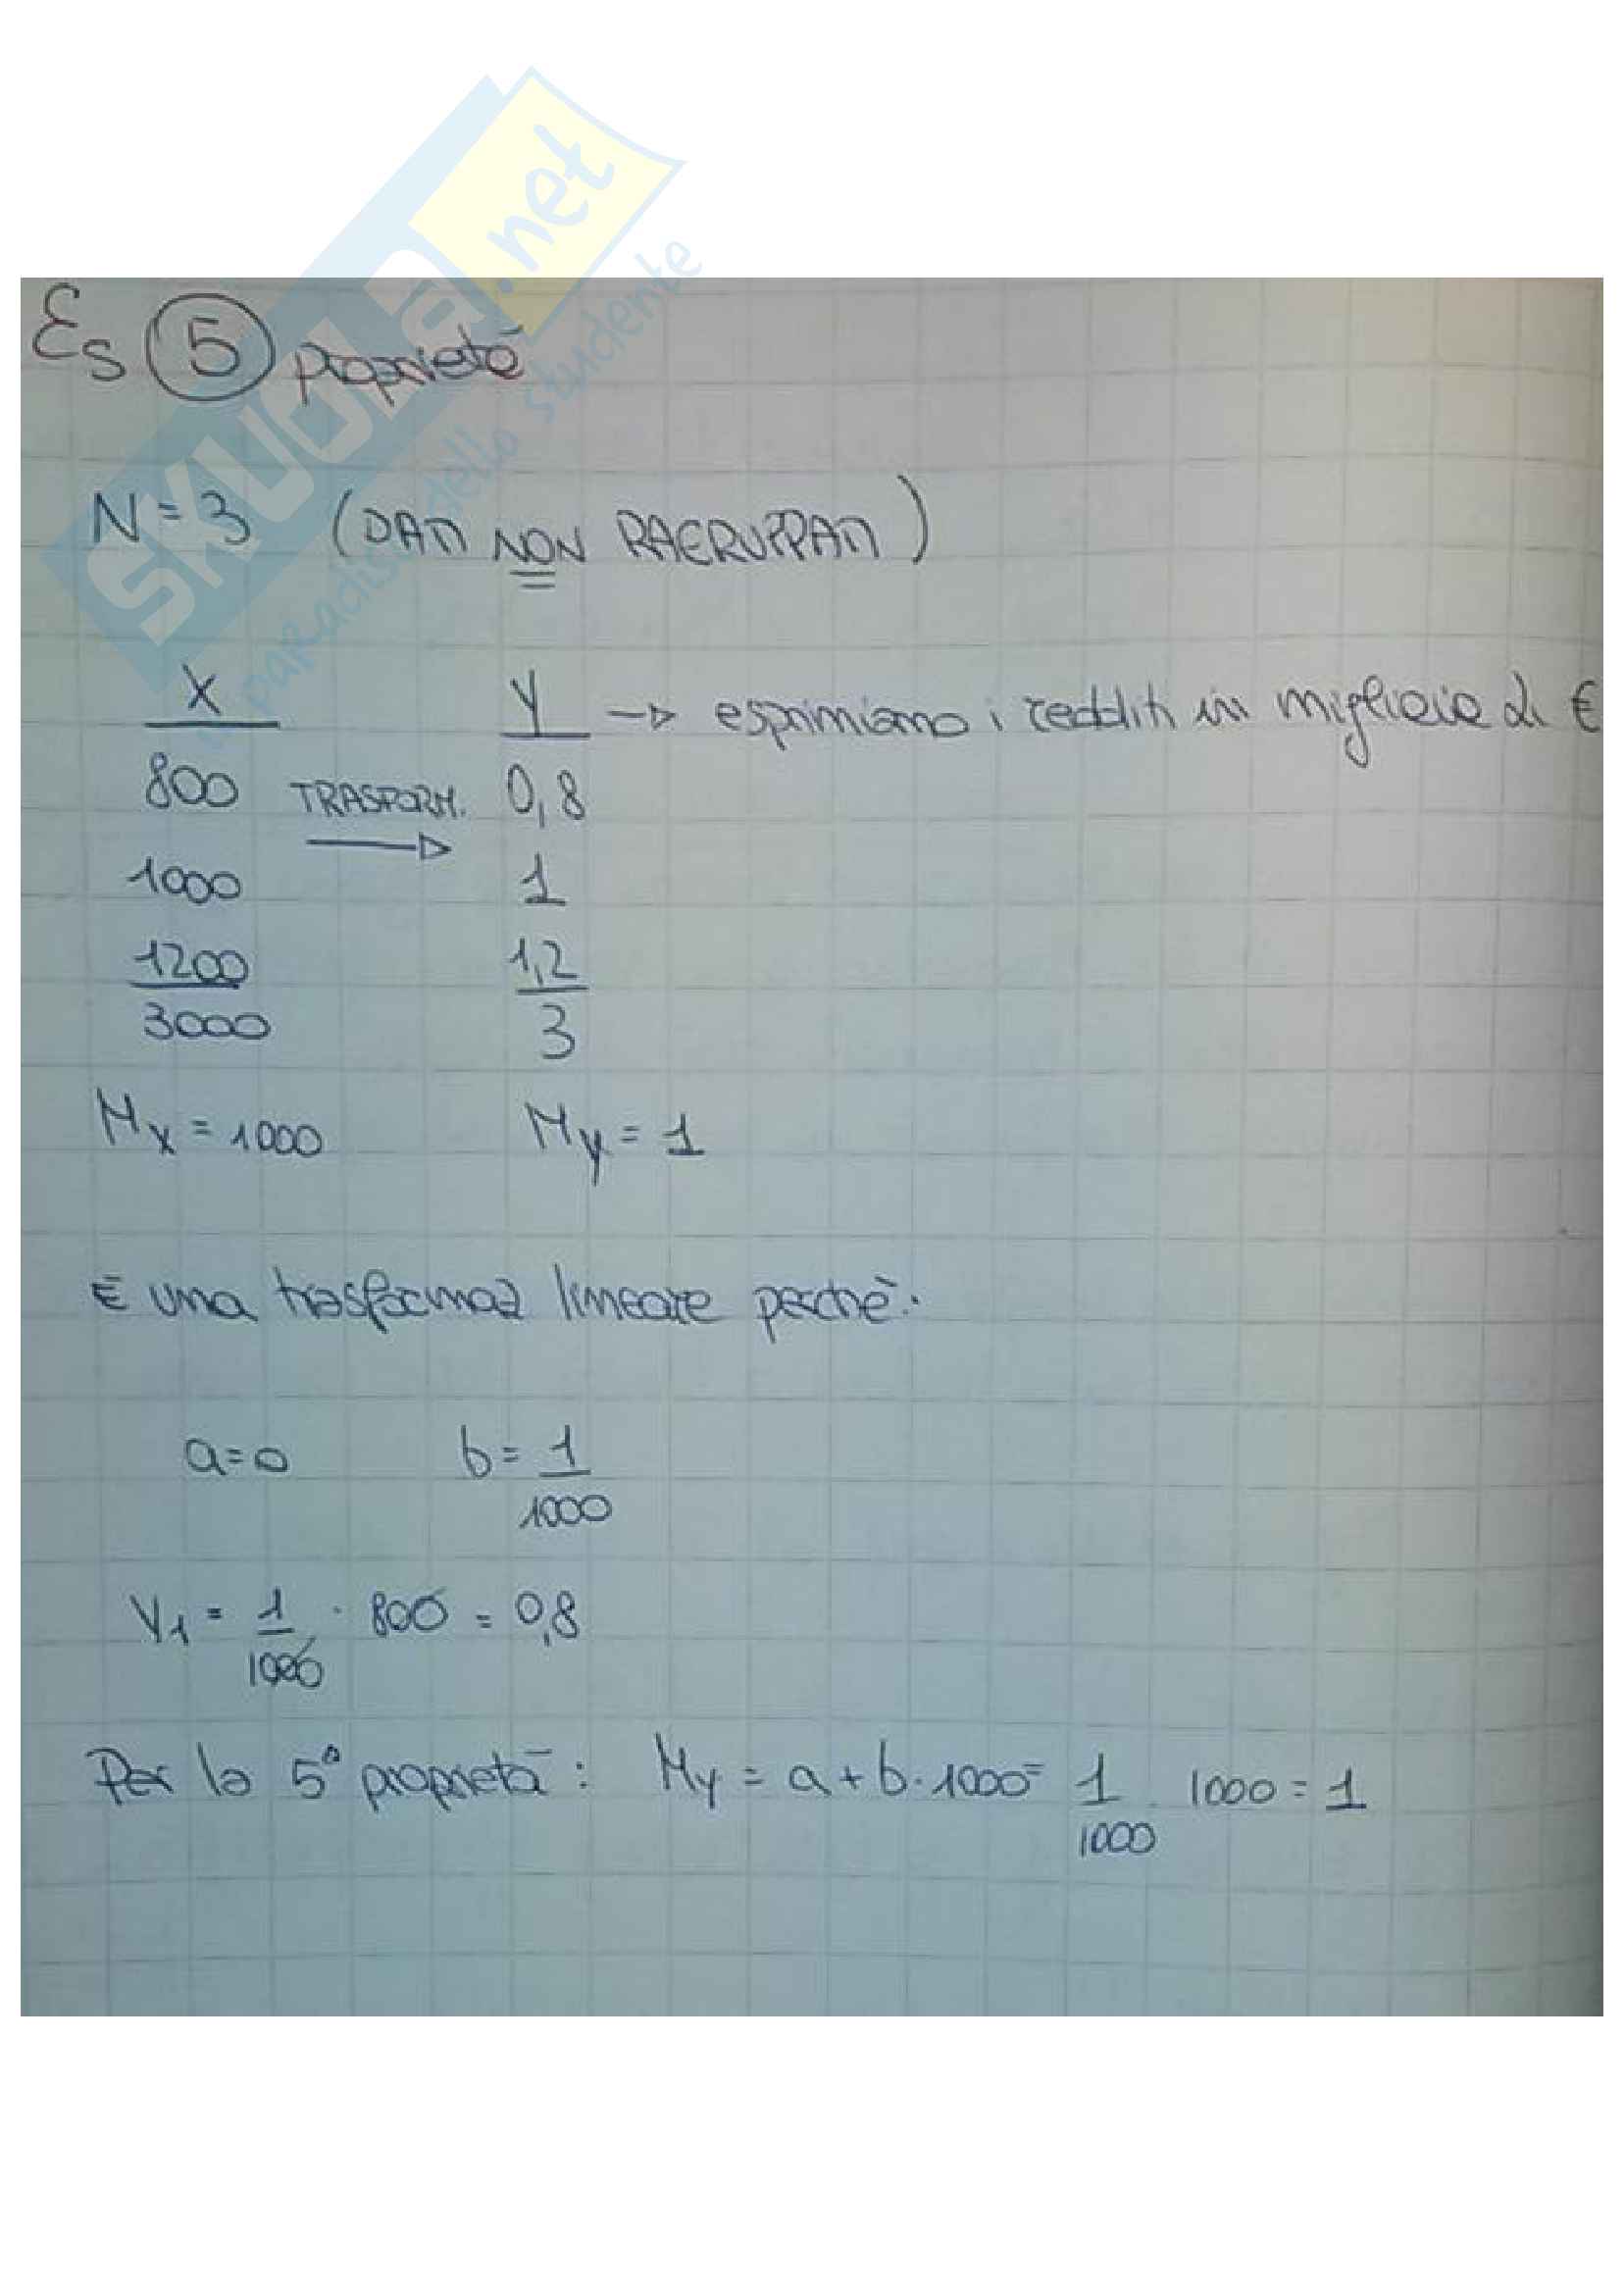 SKUOLA.net
il paradiso dello studente
Es 5 proprietà
N = 3 (DATI NON RAGRUPPATI)
X Y → esprimiamo i redditi in migliaia di €
800 TRASFORM. 0,8
1000 1
1200 1,2
3000 3
Mx = 1000 My = 1
È una trasformaz lineare perchè:
a=0 b= 1/1000
Y1 = 1/1000 · 800 = 0,8
Per la 5ª proprietà: My = a + b · 1000 = 1/1000 · 1000 = 1